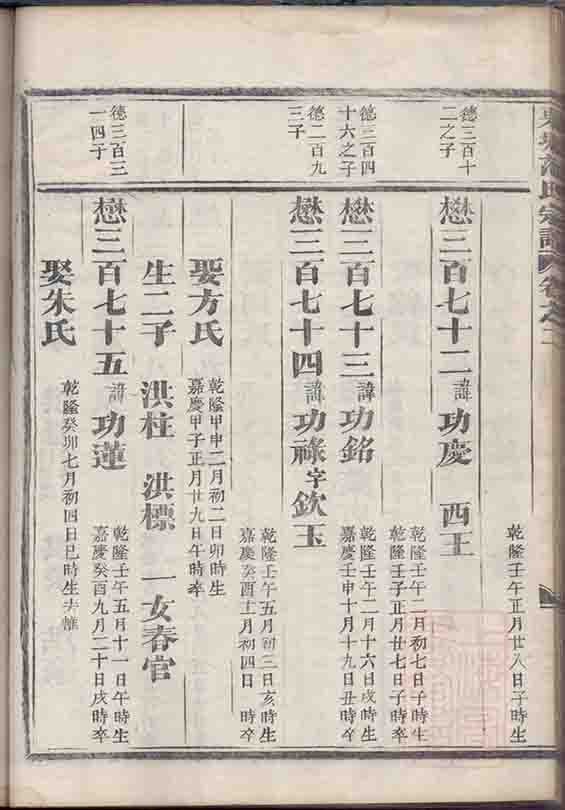 氏宗譜
乾隆壬午正月廿八日子時生
德三百十
二之子
懋三百七十二諱功慶 西王
乾隆壬午二月初七日子時生
乾隆壬子正月廿七日子時卒
德三百四
十六之子
懋三百七十三諱功銘
乾隆壬午二月十六日戌時生
嘉慶壬申十月十九日丑時卒
德二百九
三子
懋三百七十四諱功祿字欽玉
乾隆壬午五月初三日亥時生
嘉慶癸酉十一月初四日 時卒
娶方氏
乾隆甲申二月初二日卯時生
嘉慶甲子正月廿九日午時卒
生二子 洪柱 洪標 一女春官
德三百三
一四子
懋三百七十五諱功蓮
乾隆壬午五月十一日午時生
嘉慶癸酉九月二十日戌時卒
娶朱氏
乾隆癸卯七月初四日巳時生